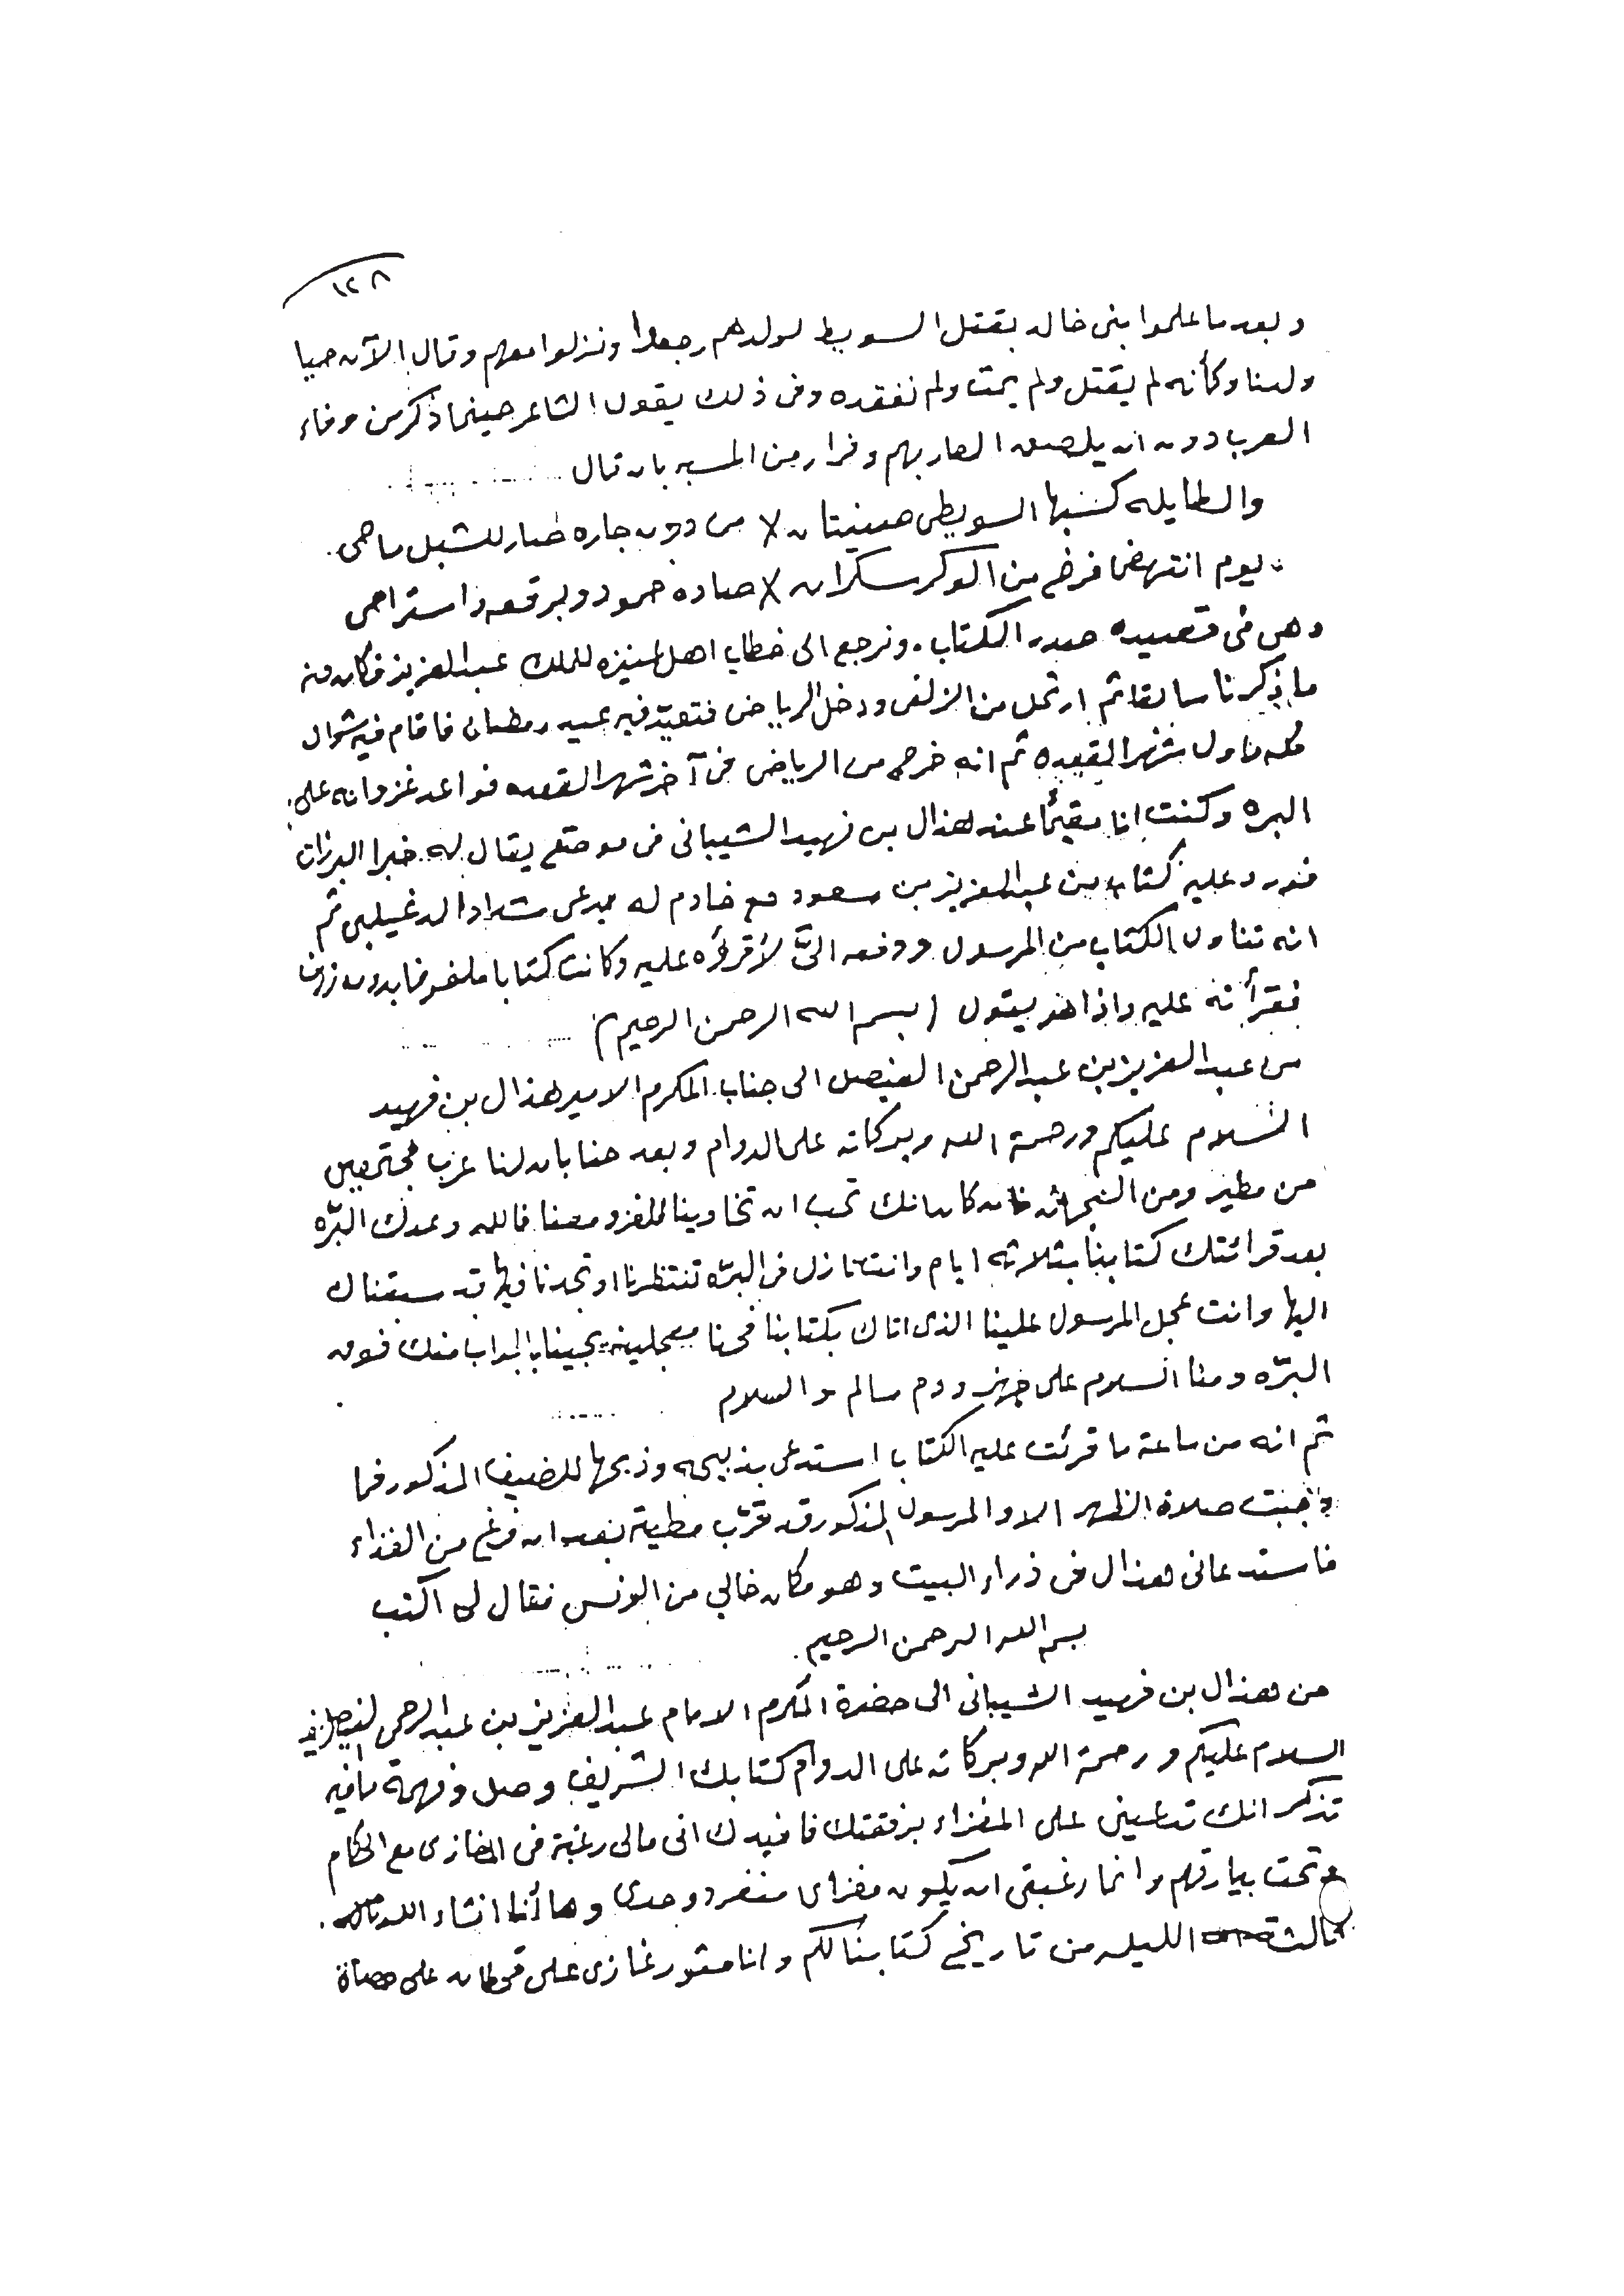 ١٢٨
وبعد ما علموا بني خالد بقتل السويط لولدهم رجعوا ونزلوا معهم وقال الآن حيا
ولدنا وكأنه لم يقتل ولم يمت ولم نفقده وفي ذلك يقول الشاعر حينما ذكر من وفاء
العرب دون ان يلصق العار بهم وفرار من المسبه بان قال
والطايله كسبها السويطي صنيتان لا من دون جاره صار للشبل ماحمى
يوم انتهض فرخ من الوكر سكران لا صاده حمود وبرقعه واستراحمى
وهي في قصيده صدر الكتاب. ونرجع الى خطاب اهل عنيزه للملك عبد العزيز فكان منه
ما ذكرنا سابقا ثم ارتحل من الزلفي ودخل الرياض فتعيّد فيه عيد رمضان فاقام فيه شوال
كله واول شهر القعيده ثم انه خرج من الرياض في آخر شهر القعده فواعد غزوانه على
البره وكنت انا مقيمًا عند هذال بن فهيد الشيباني في موضع يقال له خبرا
فورد عليه كتاب من عبد العزيز بن سعود مع خادم له يدعى شداد الدغيلبي ثم
انه تناول الكتاب من المرسول ودفعه اليّ لأقرؤه عليه وكانت كتابا ملفوفا بدون زرف
فقرأته عليه واذا هو يقول (بسم الله الرحمن الرحيم)
من عبد العزيز بن عبد الرحمن الفيصل الى جناب المكرم الامير هذال بن فهيد
السلام عليكم ورحمة الله وبركاته على الدوام وبعد حنا بان لنا عرب مجتمعين
من مطير ومن فان كان انك تحب ان تخاوينا للغزو معنا فالله وعدك البرّه
بعد قرائتك كتابنا بثلاثه ايام وانت نازل في البرّه تنتظرنا او تجدنا فيها قد سبقناك
اليها وانت عجل المرسول علينا الذي اتاك بكتابنا فحنا معجلينه يجينا بالجواب منك فوق
البرّه ومنا السلام على جهز ودم سالم والسلام
ثم انه من ساعة ما قرئت عليه الكتاب استدعى بذبيحه وذبحها للضيف المذكور فما
وجبت صلاة الظهر الا والمرسول المذكور قد قرّب مطيته بعد ان فرغ من الغذاء
فاستدعاني هذال في ذراء البيت وهو مكان خالي من الونس فقال لي اكتب
بسم الله الرحمن الرحيم
من هذال بن فهيد الشيباني الى حضرة المكرم الامام عبد العزيز بن عبد الرحمن الفيصل
السلام عليكم ورحمة الله وبركاته على الدوام كتابك الشريف وصل وفهمة مافيه
تذكر انك تداعيني على المغزاء برفقتك فافيدك اني مالي رغبة في المغازي مع الحكام
وتحت بيارقهم وانما رغبتي ان يكون مغزاي منفرد وحدي وها أنا انشاء الله
ثالث الليله من تاريخ كتابنا لكم وانا مثور غازي على قحطان على حصاة